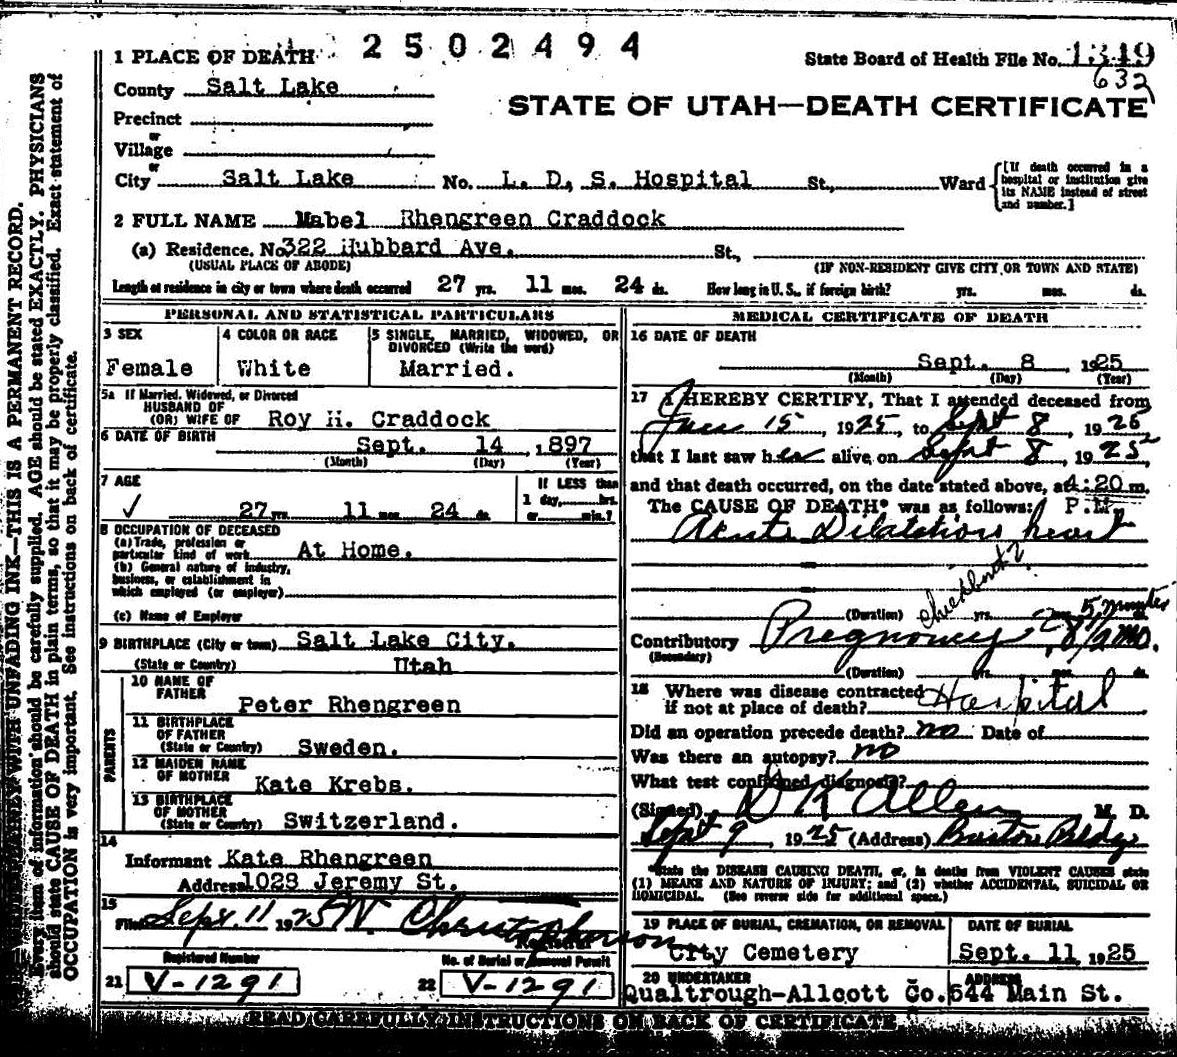 1 PLACE OF DEATH 2502494
State Board of Health File No. 1349
632
County Salt Lake
STATE OF UTAH—DEATH CERTIFICATE
Precinct
or
Village
or
City Salt Lake No. L. D. S. Hospital St., Ward
[If death occurred in a hospital or institution give its NAME instead of street and number.]
2 FULL NAME Mabel Rhengreen Craddock
(a) Residence. No. 322 Hubbard Ave. St.,
(USUAL PLACE OF ABODE) (IF NON-RESIDENT GIVE CITY OR TOWN AND STATE)
Length of residence in city or town where death occurred 27 yrs. 11 mos. 24 ds. How long in U. S., if foreign birth? yrs. mos. ds.
PERSONAL AND STATISTICAL PARTICULARS
3 SEX
Female
4 COLOR OR RACE
White
5 SINGLE, MARRIED, WIDOWED, OR
DIVORCED (Write the word)
Married.
5a If Married, Widowed, or Divorced
HUSBAND OF
(OR) WIFE OF Roy H. Craddock
6 DATE OF BIRTH
Sept. 14 ,1897
(Month) (Day) (Year)
7 AGE
27 yrs. 11 mos. 24 ds.
If LESS than
1 day, hrs.
or min.?
8 OCCUPATION OF DECEASED
(a) Trade, profession or
particular kind of work At Home.
(b) General nature of industry,
business, or establishment in
which employed (or employer)
(c) Name of Employer
9 BIRTHPLACE (City or town) Salt Lake City.
(State or Country) Utah
PARENTS
10 NAME OF
FATHER
Peter Rhengreen
11 BIRTHPLACE
OF FATHER
(State or Country) Sweden.
12 MAIDEN NAME
OF MOTHER
Kate Krebs.
13 BIRTHPLACE
OF MOTHER
(State or Country) Switzerland.
14
Informant Kate Rhengreen
Address 1023 Jeremy St.
15
Filed Sept. 11 1925 W. Christopherson
Registrar
Registered Number
21 V-1291
No. of Burial or Removal Permit
22 V-1291
MEDICAL CERTIFICATE OF DEATH
16 DATE OF DEATH
Sept. 8 1925
(Month) (Day) (Year)
17 I HEREBY CERTIFY, That I attended deceased from
June 15, 1925, to Sept 8, 1925
that I last saw her alive on Sept 8, 1925,
and that death occurred, on the date stated above, at 4:20 m.
The CAUSE OF DEATH* was as follows: P.M.
Acute Dilatation heart
(Duration) yrs. 5 minutes
Contributory Pregnancy 8 1/2 mo.
(Secondary)
(Duration) yrs. mos. ds.
18 Where was disease contracted
if not at place of death? Hospital
Did an operation precede death? no Date of
Was there an autopsy? no
What test confirmed diagnosis?
(Signed) D K Allen M. D.
Sept 9, 1925 (Address) Boston Bldg
*State the DISEASE CAUSING DEATH, or, in deaths from VIOLENT CAUSES state
(1) MEANS AND NATURE OF INJURY; and (2) whether ACCIDENTAL, SUICIDAL OR
HOMICIDAL. (See reverse side for additional space.)
19 PLACE OF BURIAL, CREMATION, OR REMOVAL
City Cemetery
DATE OF BURIAL
Sept. 11 1925
20 UNDERTAKER
Qualtrough-Allcott Co.
ADDRESS
544 Main St.
READ CAREFULLY INSTRUCTIONS ON BACK OF CERTIFICATE
WITH UNFADING INK—THIS IS A PERMANENT RECORD.
Every item of information should be carefully supplied. AGE should be stated EXACTLY. PHYSICIANS
should state CAUSE OF DEATH in plain terms, so that it may be properly classified. Exact statement of
OCCUPATION is very important. See instructions on back of certificate.